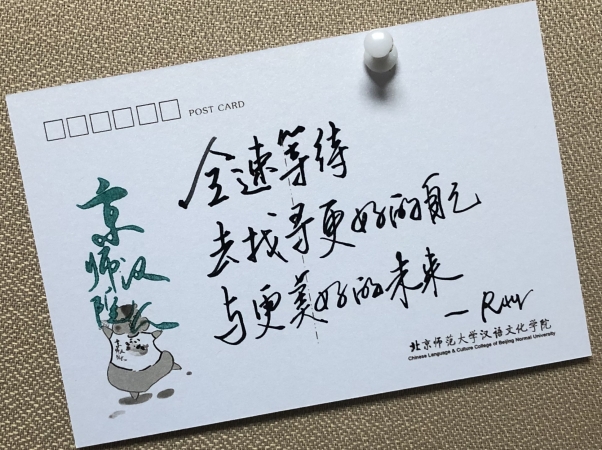 POST CARD
全速等待
去找寻更好的自己
与更美好的未来
一Ray
京师汉院人
北京师范大学汉语文化学院
Chinese Language & Culture College of Beijing Normal University